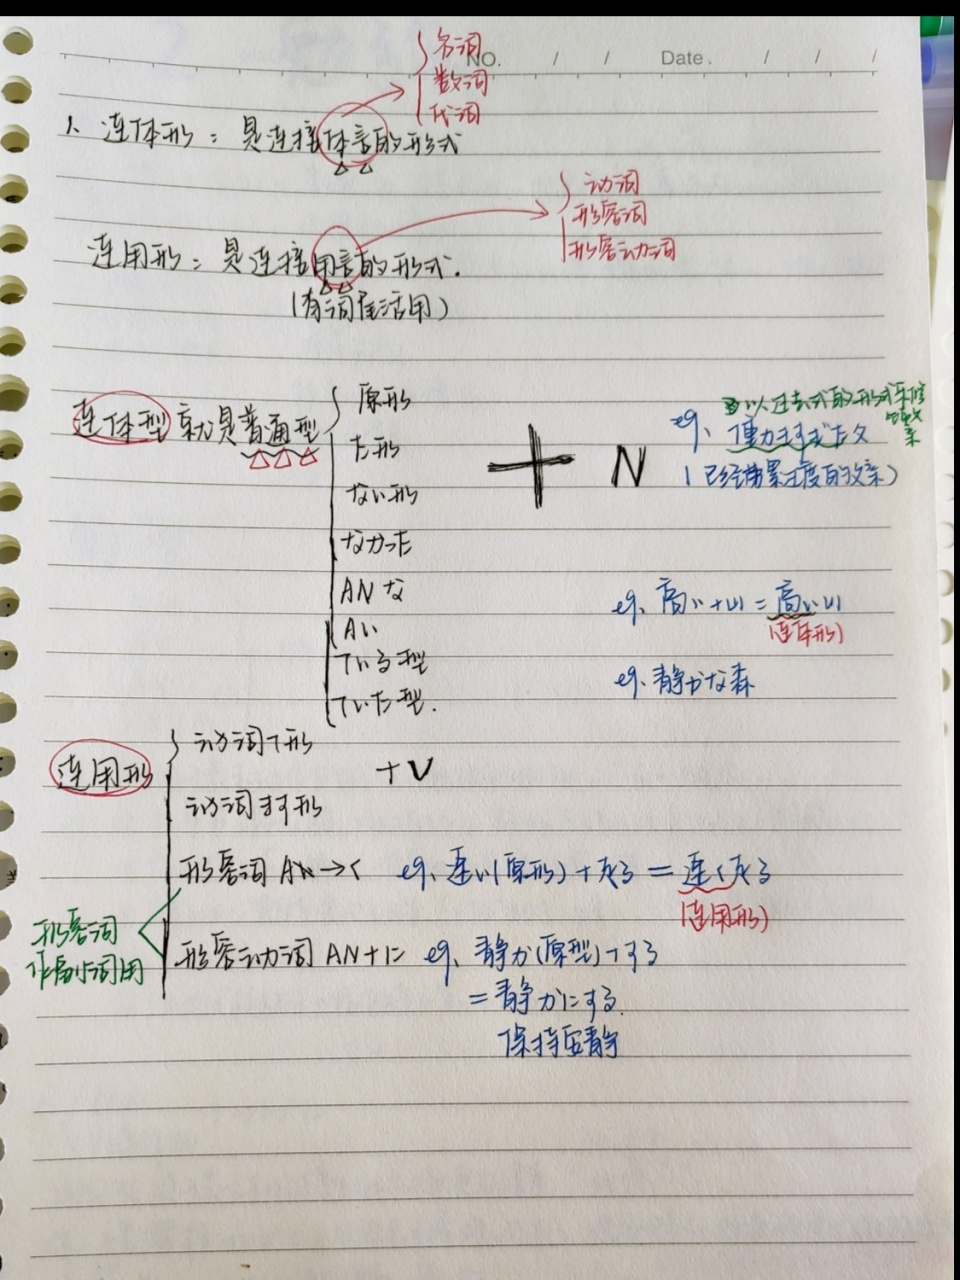 NO.　/　/　Date.　/　/　/
名词
数词
代词
1、连体形：是连接体言的形式
动词
形容词
形容动词
连用形：是连接用言的形式.
(有词尾活用)
连体型 就是普通型
原形
た形
ない形
なかった
ANな
Aい
ている型
ていた型.
+ N
以过去式的形式来修饰父亲
eg、働きすぎた父
(已经劳累过度的父亲)
eg、高い+山=高い山
(连体形)
eg、静かな森
连用形
动词て形
动词ます形
+V
形容词 Aい→く eg、速い(原形)+なる=速くなる
(连用形)
形容动词 AN+に eg、静か(原型)+する
=静かにする.
保持安静
形容词
作副词用